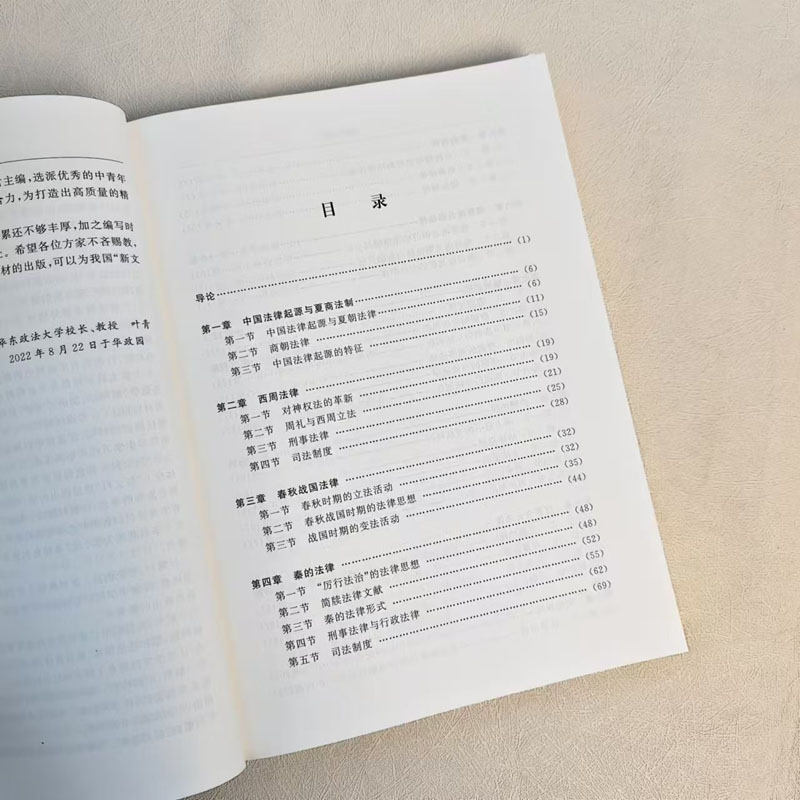 主编，选派优秀的中青年
合力，为打造出高质量的精
累还不够丰厚，加之编写时
。希望各位方家不吝赐教，
材的出版，可以为我国“新文
华东政法大学校长、教授 叶青
2022年8月22日于华政园
目 录
导论 (1)
第一章 中国法律起源与夏商法制 (6)
第一节 中国法律起源与夏朝法律 (6)
第二节 商朝法律 (11)
第三节 中国法律起源的特征 (15)
第二章 西周法律 (19)
第一节 对神权法的革新 (19)
第二节 周礼与西周立法 (21)
第三节 刑事法律 (25)
第四节 司法制度 (28)
第三章 春秋战国法律 (32)
第一节 春秋时期的立法活动 (32)
第二节 春秋战国时期的法律思想 (35)
第三节 战国时期的变法活动 (44)
第四章 秦的法律 (48)
第一节 “厉行法治”的法律思想 (48)
第二节 简牍法律文献 (52)
第三节 秦的法律形式 (55)
第四节 刑事法律与行政法律 (62)
第五节 司法制度 (69)